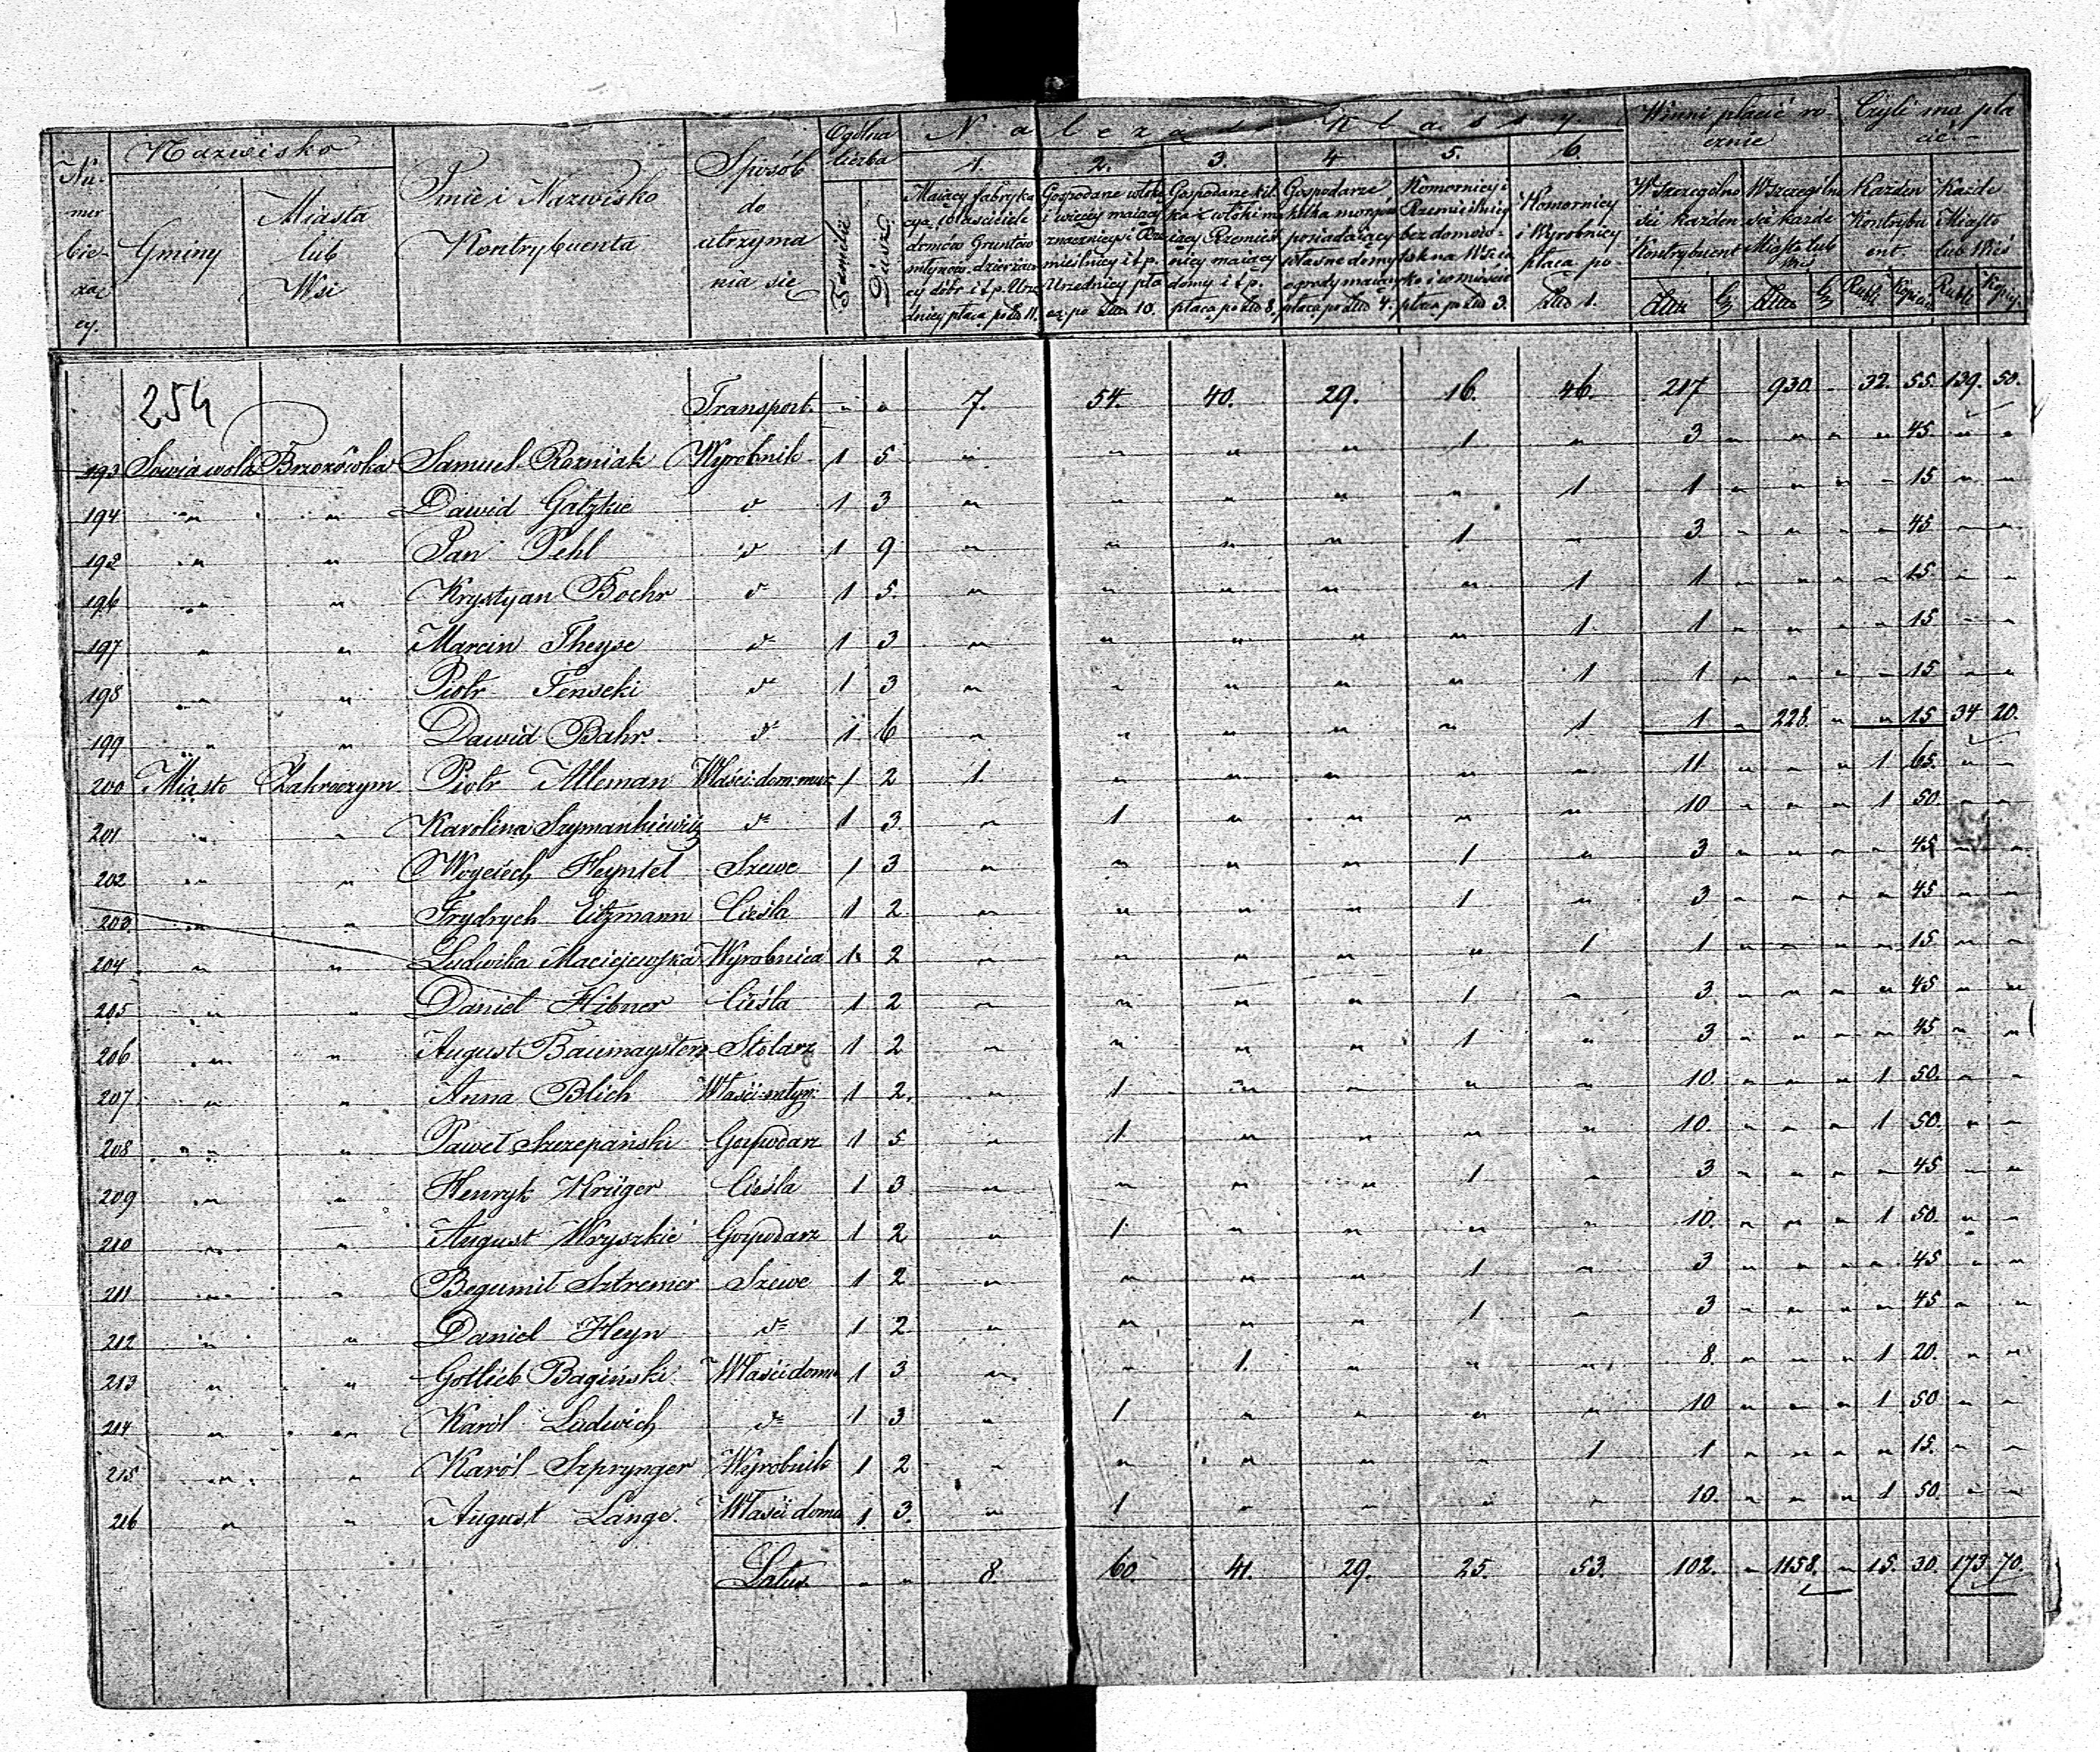 Numer bieżący.
Nazwisko
Gminy
Miasta lub Wsi
Imie i Nazwisko Kontrybuenta
Sposób do utrzymania się
Ogólna liczba
Familii
Dusz
Należą do Klassy
1.
2.
3.
4
5.
6.
Maiący fabryka
domów Gruntów
młynów, dzierżaw
cy dóbr i t.p. Urzę
dnicy płacą po Złł 11.
Gospodarze włoka
i więcey maiący
znacznieysi Rze
mieślnicy i t.p.
Urzednicy pła
cą po Złł 10.
Gospodarze pół
maiący Rzemieśl
nicy maiący
domy i t.p.
płacą po Złł 8.
Gospodarze
kilka morgów
posiadaiący
własne domy
ogrody maiący
płacą po Złł 4.
Komornicy i
Rzemieślnicy
bez domów
płacą po Złł 3.
Komornicy
i Wyrobnicy
płacą po
Złł 1.
Winni płacić rocznie
Wszczególności każden Kontrybuent
Wszczególności każde Miasto lub Wieś
Złłr G Złłr G
Czyli ma płacić
Każden Kontrybuent
Każde Miasto lub Wieś
Rubli Kopiei Rubli Kopiy.
254 Transport. " " 7. 54. 40. 29. 16. 46. 217 930 - 32. 55. 139. 50.
193 Sowia wola Brzozówka Samuel Rozniak Wyrobnik 1 5 " " " " 1 " 3 " " " " 45 " "
194 " " Dawid Gatzkie d 1 3 " " " " " 1 1 " " " " 15 " "
192 " " Jan Pehl d 1 9 " " " " 1 " 3 " " " " 45 " "
196 " " Krystyan Boehr d 1 5. " " " " " 1 1 " " " " 15 " "
197 " " Marcin Theyse d 1 3 " " " " " 1 1 " " " " 15 " "
198 " " Piotr Tenseki d 1 3 " " " " " 1 1 " " " " 15 " "
199 " " Dawid Bahr. d 1 6 " " " " " 1 1 " 228 " " 15 34 20.
200 Miasto Zakroczym Piotr Alleman Właści: dom: mur: 1 2 1. " " " " " 11 " " " 1 65. " "
201 " " Karolina Szymankiewitz d 1 3 " 1 " " " " 10 " " " 1 50. " "
202 " " Woyciech Heyntel Szewc 1 3 " " " " 1 " 3 " " " " 45 " "
203. " " Frydrych Litzmann Cieśla 1 2 " " " " 1 " 3 " " " " 45 " "
204 " " Ludwika Maciejewska Wyrobnica 1 2 " " " " " 1 1 " " " " 15 " "
205 " " Daniel Hibner Cieśla 1 2 " " " " 1 " 3 " " " " 45 " "
206 " " August Baumayster Stolarz 1 2 " " " " 1 " 3 " " " " 45 " "
207 " " Anna Blich Właści: młyn: 1 2. " 1 " " " " 10. " " " 1 50. " "
208 " " Paweł Szczepański Gospodarz 1 5 " 1. " " " " 10. " " " 1 50. " "
209 " " Henryk Krüger Cieśla 1 3 " " " " 1 " 3 " " " " 45 " "
210 " " August Wryszkie Gospodarz 1 2 " 1. " " " " 10. " " " 1 50. " "
211 " " Bogumił Sztremer Szewc 1 2 " " " " 1 " 3 " " " " 45 " "
212 " " Daniel Heyn d 1 2 " " " " 1 " 3 " " " " 45 " "
213 " " Gottlieb Bagiński Właści domu 1 3 " " 1. " " " 8. " " " 1 20. " "
214 " " Karol Ludwich d 1 3 " 1 " " " " 10 " " " 1 50 " "
215 " " Karól Szprynger Wyrobnik 1 2 " " " " " 1 1 " " " " 15. " "
216 " " August Lange. Właści domu 1. 3. " 1 " " " " 10. " " " 1 50. " "
Latus. " " 8. 60. 41. 29. 25. 53. 102. " 1158. " 15. 30. 173 70.